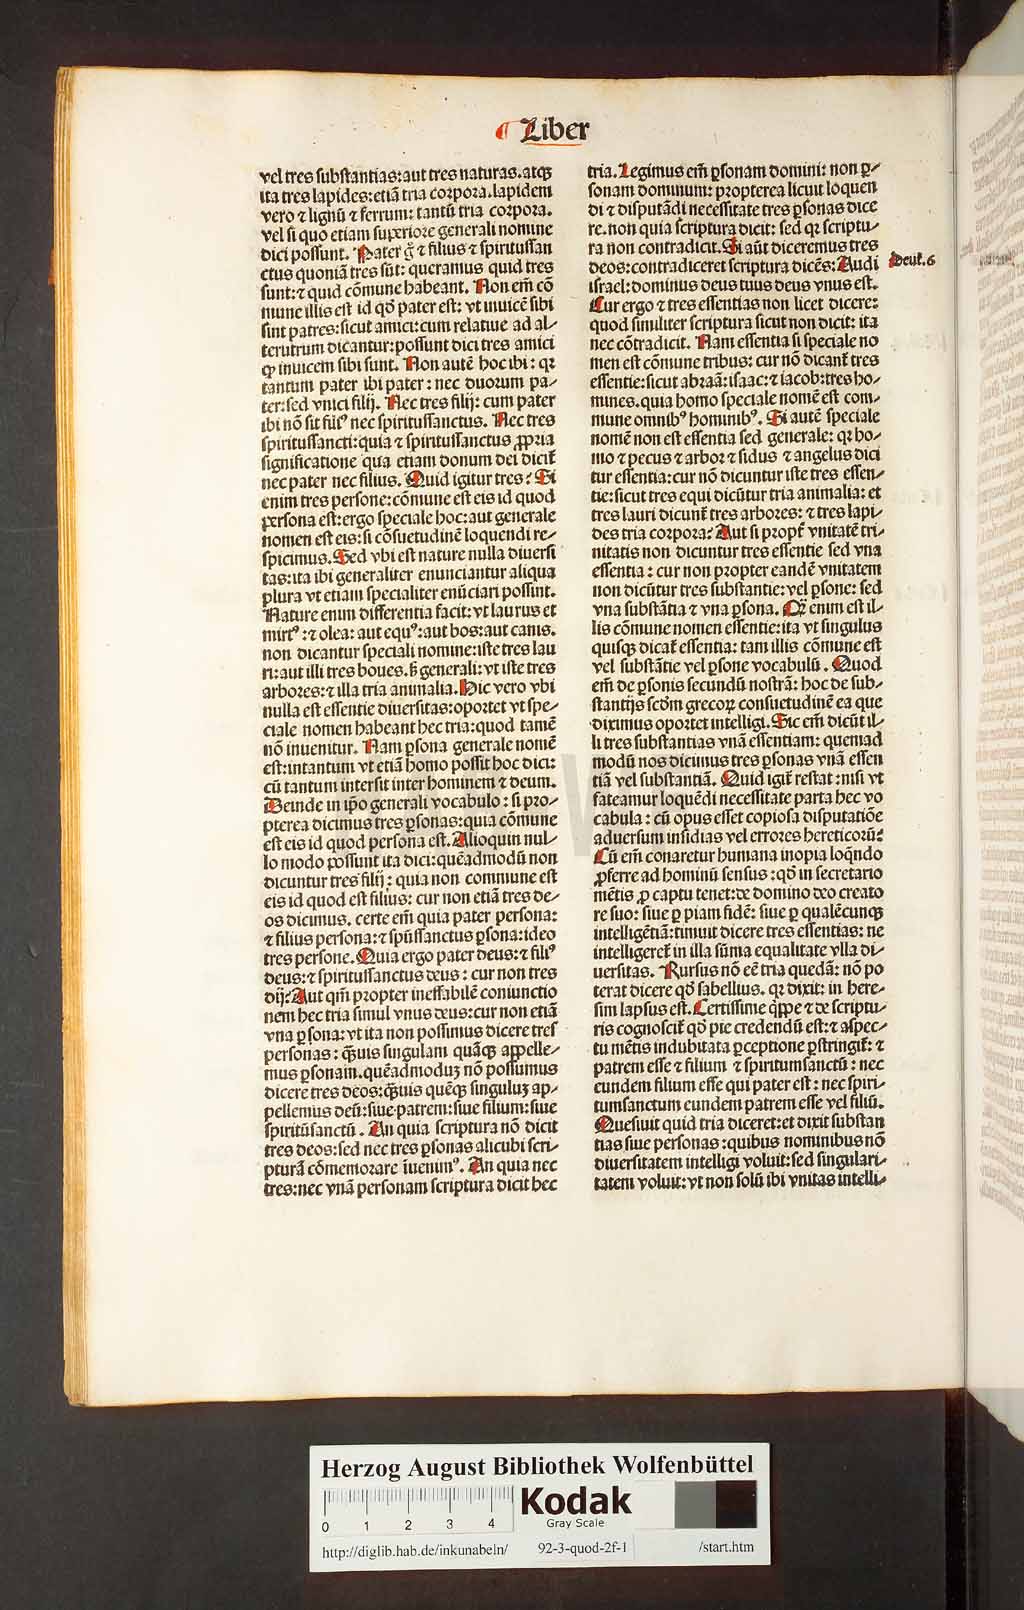 ¶ Liber
vel tres substantias: aut tres naturas. atqꝫ
ita tres lapides: etiā tria corpora. lapidem
vero ⁊ lignū ⁊ ferrum: tantū tria corpora.
vel si quo etiam superiore generali nomine
dici possunt. Pater g̃ ⁊ filius ⁊ spiritussan
ctus quoniā tres sūt: queramus quid tres
sunt: ⁊ quid cōmune habeant. Non em̄ cō
mune illis est id qḋ pater est: vt inuicē sibi
sint patres: sicut amici: cum relatiue ad al-
terutrum dicantur: possunt dici tres amici
ꝙ inuicem sibi sunt. Non autē hoc ibi: qꝛ
tantum pater ibi pater: nec duorum pa-
ter: sed vnici filij. Nec tres filij: cum pater
ibi nō sit filiꝰ nec spiritussanctus. Nec tres
spiritussancti: quia ⁊ spiritussanctus ꝓpria
significatione qua etiam donum dei dicit̃
nec pater nec filius. Quid igitur tres? Si
enim tres persone: cōmune est eis id quod
persona est: ergo speciale hoc: aut generale
nomen est eis: si cōsuetudinē loquendi re-
spicimus. Sed vbi est nature nulla diuersi
tas: ita ibi generaliter enunciantur aliqua
plura vt etiam specialiter enūciari possint.
Nature enim differentia facit: vt laurus et
mirtꝰ: ⁊ olea: aut equꝰ: aut bos: aut canis.
non dicantur speciali nomine: iste tres lau
ri: aut illi tres boues. ß generali: vt iste tres
arbores: ⁊ illa tria animalia. Hic vero vbi
nulla est essentie diuersitas: oportet vt spe-
ciale nomen habeant hec tria: quod tamē
nō inuenitur. Nam ꝑsona generale nomē
est: intantum vt etiā homo possit hoc dici:
cū tantum intersit inter hominem ⁊ deum.
Deinde in ip̄o generali vocabulo: si pro-
pterea dicimus tres ꝑsonas: quia cōmune
est eis id quod persona est. Alioquin nul-
lo modo possunt ita dici: quēadmodū non
dicuntur tres filij: quia non commune est
eis id quod est filius: cur non etiā tres de-
os dicimus. certe em̄ quia pater persona:
⁊ filius persona: ⁊ sp̄ussanctus ꝑsona: ideo
tres persone. Quia ergo pater deus: ⁊ filiꝰ
deus: ⁊ spiritussanctus deus: cur non tres
dij? Aut qm̄ propter ineffabilē coniunctio
nem hec tria simul vnus deus: cur non etiā
vna ꝑsona: vt ita non possimus dicere tres
personas: qꝫuis singulam quāqꝫ appelle-
mus ꝑsonam. quēadmoduꝫ nō possumus
dicere tres deos: qꝫuis quēqꝫ singuluꝫ ap-
pellemus deū: siue patrem: siue filium: siue
spiritūsanctū. An quia scriptura nō dicit
tres deos: sed nec tres ꝑsonas alicubi scri-
pturā cōmemorare īuenimꝰ. An quia nec
tres: nec vnā personam scriptura dicit hec
tria. Legimus em̄ ꝑsonam domini: non ꝑ-
sonam dominum: propterea licuit loquen
di ⁊ disputādi necessitate tres ꝑsonas dice
re. non quia scriptura dicit: sed qꝛ scriptu-
ra non contradicit. Si aūt diceremus tres
deos: contradiceret scriptura dicēs: Audi
israel: dominus deus tuus deus vnus est.
Cur ergo ⁊ tres essentias non licet dicere:
quod similiter scriptura sicut non dicit: ita
nec cōtradicit. Nam essentia si speciale no
men est cōmune tribus: cur nō dicant̃ tres
essentie: sicut abraā: isaac: ⁊ iacob: tres ho-
mines. quia homo speciale nomē est com-
mune omnibꝰ hominibꝰ. Si autē speciale
nomē non est essentia sed generale: qꝛ ho-
mo ⁊ pecus ⁊ arbor ⁊ sidus ⁊ angelus dici
tur essentia: cur nō dicuntur iste tres essen-
tie: sicut tres equi dicūtur tria animalia: et
tres lauri dicunt̃ tres arbores: ⁊ tres lapi-
des tria corpora? Aut si propt̃ vnitatē tri-
nitatis non dicuntur tres essentie sed vna
essentia: cur non propter eandē vnitatem
non dicūtur tres substantie: vel ꝑsone: sed
vna substātia ⁊ vna ꝑsona. Qꝫ enim est il-
lis cōmune nomen essentie: ita vt singulus
quisqꝫ dicat̃ essentia: tam illis cōmune est
vel substātie vel ꝑsone vocabulū. Quod
em̄ de ꝑsonis secundū nostrā: hoc de sub-
stantijs scḋm grecoꝝ consuetudinē ea que
diximus oportet intelligi. Sic em̄ dicūt il-
li tres substantias vnā essentiam: quemad
modū nos dicimus tres ꝑsonas vnā essen
tiā vel substantiā. Quid igit̃ restat: nisi vt
fateamur loquēdi necessitate parta hec vo
cabula: cū opus esset copiosa disputatiōe
aduersum insidias vel errores hereticorū?
Cū em̄ conaretur humana inopia loq̄ndo
ꝓferre ad hominū sensus: qḋ in secretario
mētis ꝓ captu tenet: de domino deo creato
re suo: siue ꝑ piam fidē: siue ꝑ qualēcunqꝫ
intelligētiā: timuit dicere tres essentias: ne
intelligeret̃ in illa sūma equalitate vlla di-
uersitas. Rursus nō eē tria quedā: nō po
terat dicere qḋ sabellius. qꝛ dixit: in here-
sim lapsus est. Certissime q̄ppe ⁊ de scriptu-
ris cognoscit̃ qḋ pie credendū est: ⁊ aspec-
tu mētis indubitata ꝑceptione ꝑstringit̃: ⁊
patrem esse ⁊ filium ⁊ spiritumsanctū: nec
eundem filium esse qui pater est: nec spiri-
tumsanctum eundem patrem esse vel filiū.
Quesiuit quid tria diceret: et dixit substan
tias siue personas: quibus nominibus nō
diuersitatem intelligi voluit: sed singulari-
tatem voluit: vt non solū ibi vnitas intelli-
Deut̃. 6
Herzog August Bibliothek Wolfenbüttel
0 1 2 3 4
Kodak
Gray Scale
http://diglib.hab.de/inkunabeln/ 92-3-quod-2f-1 /start.htm